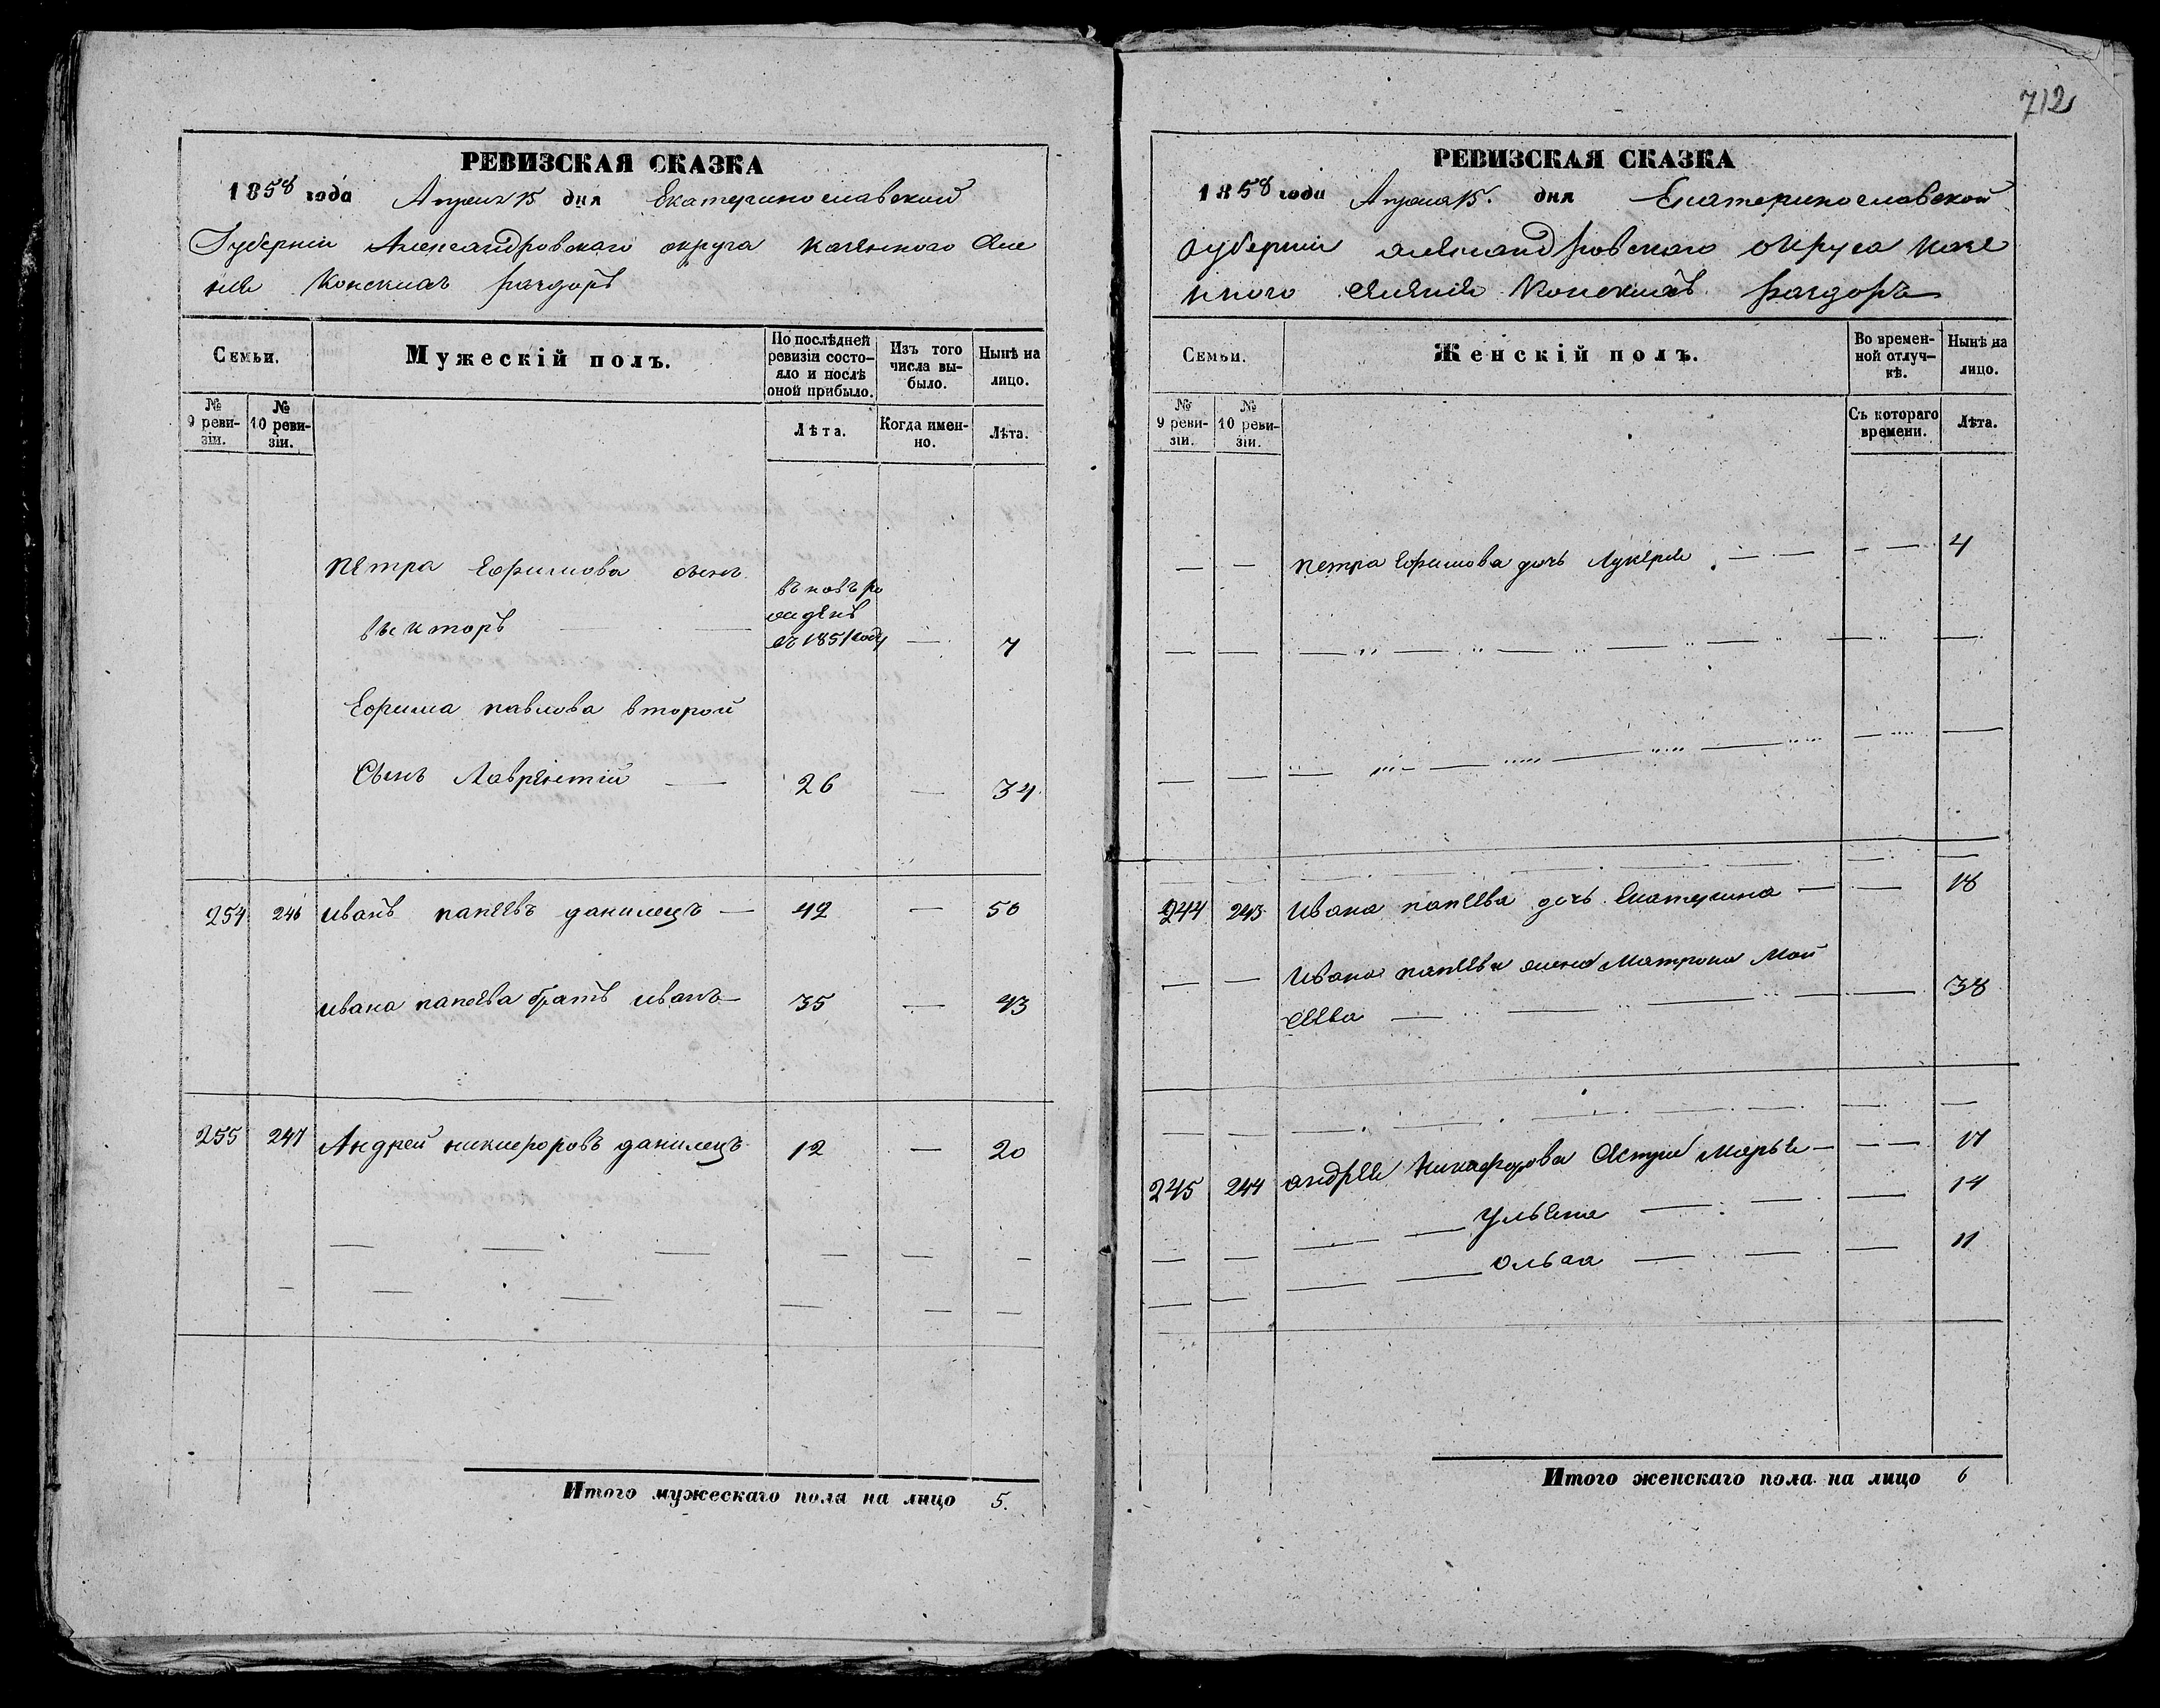 712
РЕВИЗСКАЯ СКАЗКА
1858 года Апреля 15 дня Екатеринославской
Губернии Александровскаго округа казенного Селе
ния Конскихъ раздоръ
Семьи.
Мужескій полъ.
По послѣдней
ревизіи состо-
яло и послѣ
оной прибыло.
Изъ того
числа вы-
было.
Нынѣ на
лицо.
№
9 реви-
зіи.
№
10 реви-
зіи.
Лѣта.
Когда имен-
но.
Лѣта.
Петра Ефимова сынъ
въ новъ ро
жденъ
въ 1851 году
7
Ефима павлова второй
Сынъ Лаврентій — 26 — 34
254 246 иванъ данилецъ — 42 — 50
ивана братъ иванъ — 35 — 43
255 247 Андрей никифоровъ данилецъ 12 — 20
Итого мужескаго пола на лицо 5.
РЕВИЗСКАЯ СКАЗКА
1858 года Апреля 15. дня Екатеринославской
губернии александровскаго округа казе
нного селения Конскихъ раздоръ
Семьи.
Женскій полъ.
Во времен-
ной отлуч-
кѣ.
Нынѣ на
лицо.
№
9 реви-
зіи.
№
10 реви-
зіи.
Съ котораго
времени.
Лѣта.
— — петра Ефимова дочь Лукерия — — — — 4
244 243 Ивана дочь Екатерина — — 18
— — Ивана жена Матрона Мои
сеева — — — — — 38
245 244 андрея Никифорова Сестры Марья — — — 17
— — Ульяна — — — 14
— — Ольга — — — 11
Итого женскаго пола на лицо 6